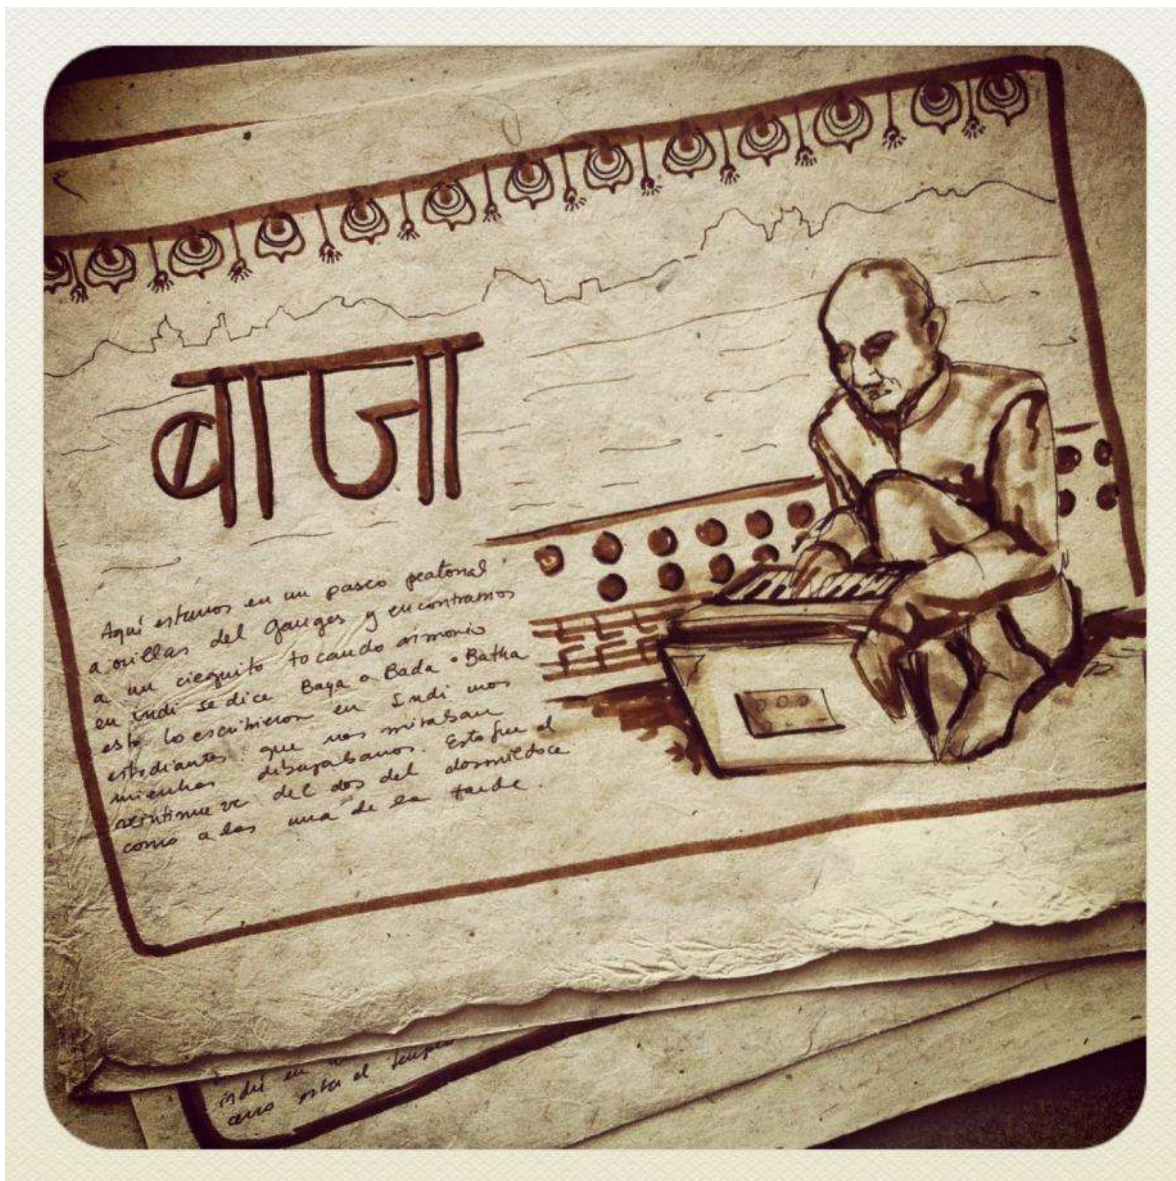 बाजा
Aquí estamos en un paseo peatonal
a orillas del Ganges y encontramos
a un cieguito tocando armonio
en indi se dice Baya o Bada o Batha
esto lo escribieron en Indi unos
estudiantes que nos miraban
mientras dibujabamos. Esto fue el
veintinueve del dos del dosmildoce
como a las una de la tarde.
indi en
esta el templo